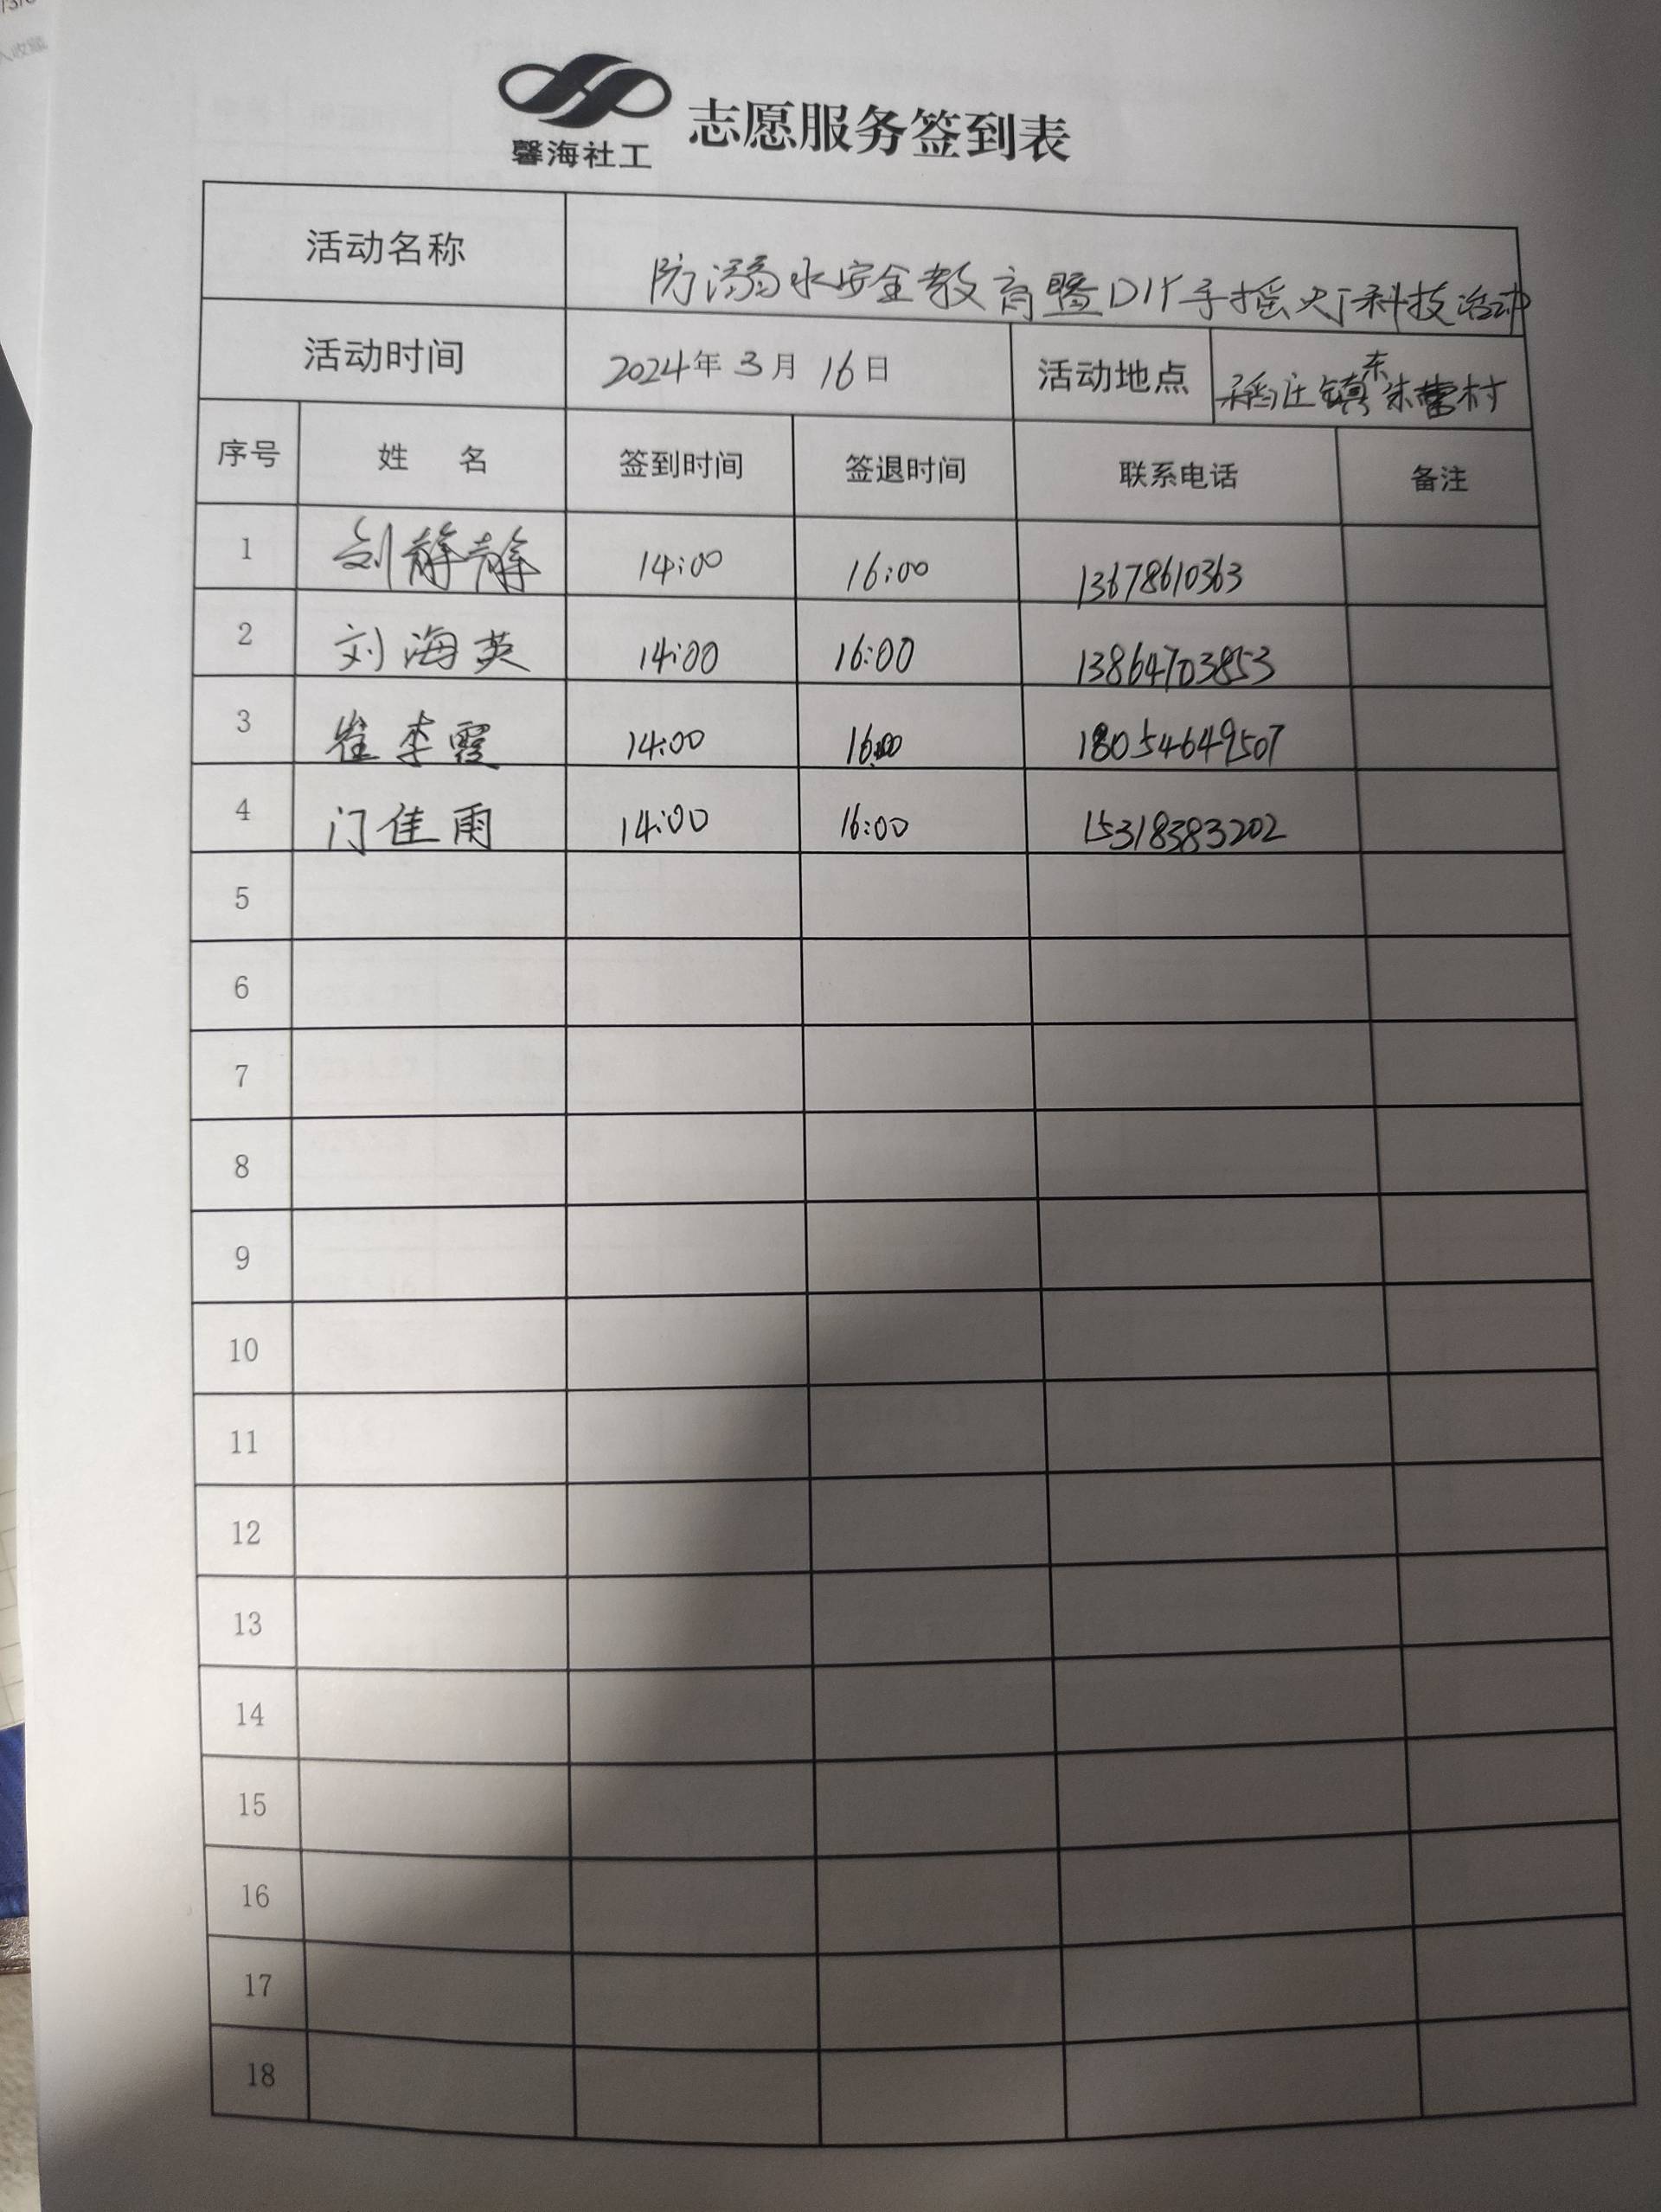 馨海社工 志愿服务签到表
活动名称 防溺水安全教育暨DIY手摇灯科技活动
活动时间 2024年3月16日 活动地点 稻庄镇东朱营村
序号 姓名 签到时间 签退时间 联系电话 备注
1 刘静静 14:00 16:00 13678610363
2 刘海英 14:00 16:00 13864703853
3 崔李霞 14:00 16:00 18054649507
4 门佳雨 14:00 16:00 15318383202
5
6
7
8
9
10
11
12
13
14
15
16
17
18